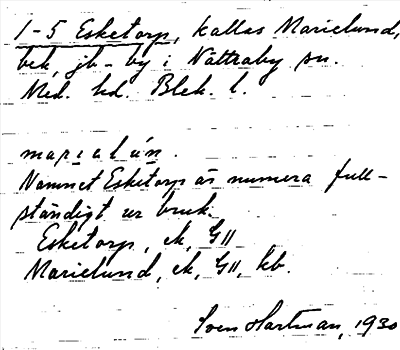 1-5 Esketorp, kallas Marielund,
bek, jb-by i Nättraby sn.
Med. hd. Blek. l.
marielún.
Namnet Esketorp är numera full-
ständigt ur bruk.
Esketorp, ek, G11
Marielund, ek, G11, kb.
Sven Hartman, 1930